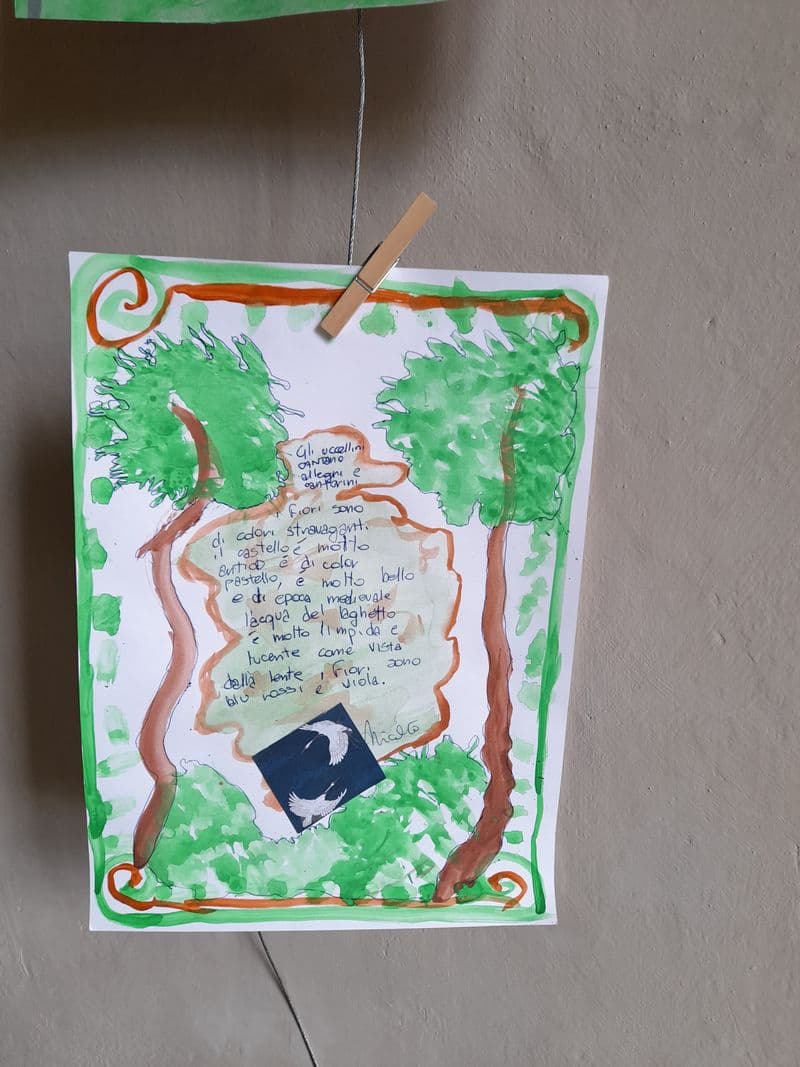 Gli uccellini
cantano
allegri e
canterini
i fiori sono
di colori stravaganti.
il castello é molto
antico é di color
pastello, é molto bello
e di epoca medievale
l'acqua del laghetto
é molto limpida e
lucente come vista
dalla lente i fiori sono
blu rossi e viola.
Nicolò